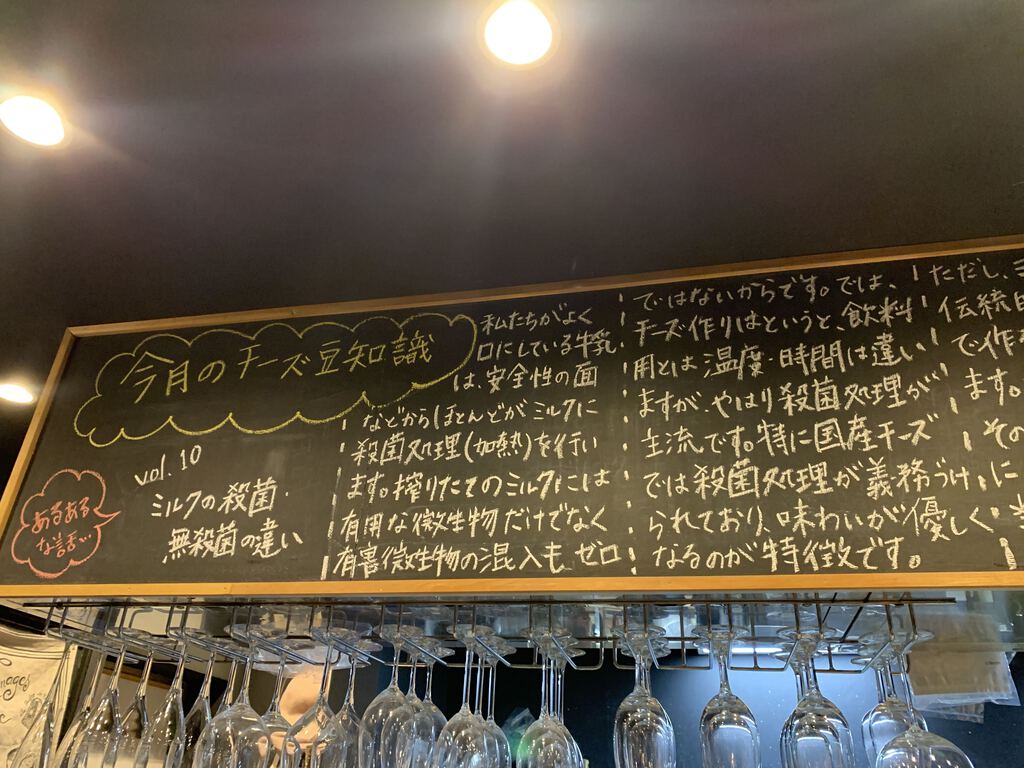 今月のチーズ豆知識
vol.10
ミルクの殺菌・
無殺菌の違い
あるある
な話…
私たちがよく
口にしている牛乳
は、安全性の面
などからほとんどがミルクに
殺菌処理(加熱)を行い
ます。搾りたてのミルクには
有用な微生物だけでなく
有害微生物の混入も ゼロ
ではないからです。では、
チーズ作りはというと、飲料
用とは温度・時間は違い
ますが、やはり殺菌処理が
主流です。特に国産チーズ
では殺菌処理が義務づけ
られており、味わいが優しく
なるのが特徴です。
ただし、
伝統
で作
ます。
その
に